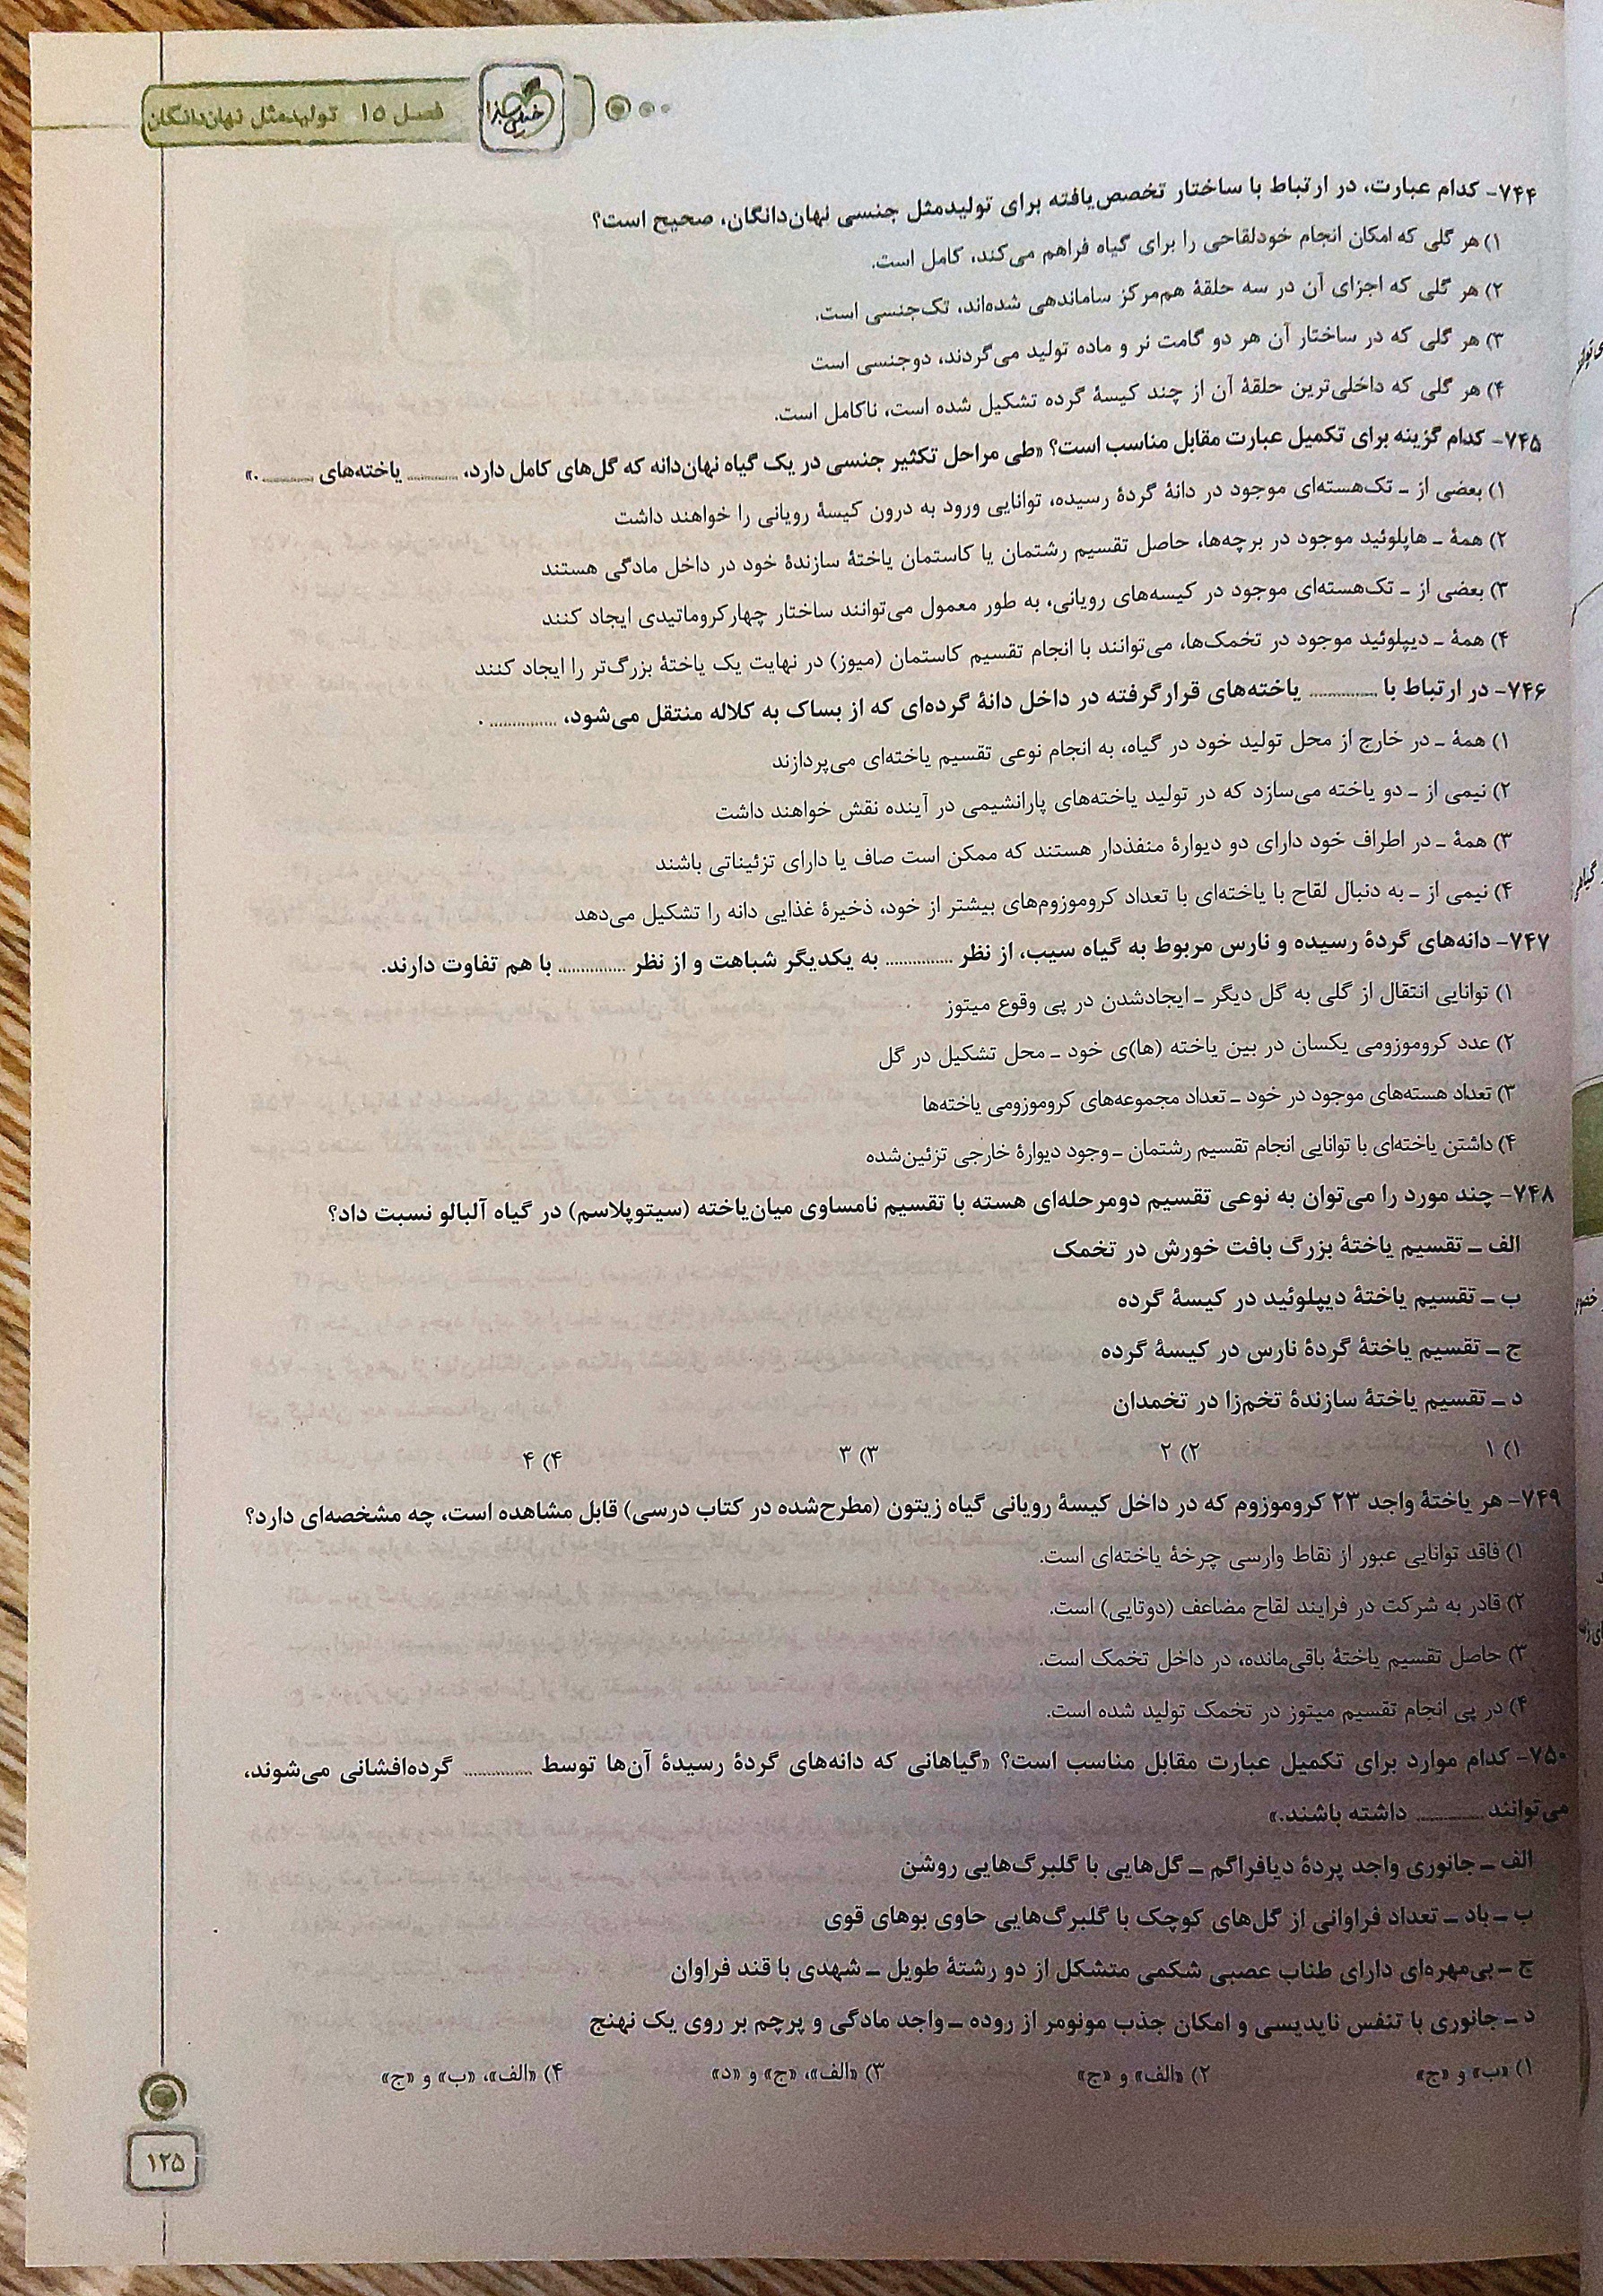 فصل ۱۵ تولیدمثل نهان‌دانگان
خیلی سبز
۷۴۴- کدام عبارت، در ارتباط با ساختار تخصص‌یافته برای تولیدمثل جنسی نهان‌دانگان، صحیح است؟
۱) هر گلی که امکان انجام خودلقاحی را برای گیاه فراهم می‌کند، کامل است.
۲) هر گلی که اجزای آن در سه حلقۀ هم‌مرکز ساماندهی شده‌اند، تک‌جنسی است.
۳) هر گلی که در ساختار آن هر دو گامت نر و ماده تولید می‌گردند، دوجنسی است
۴) هر گلی که داخلی‌ترین حلقۀ آن از چند کیسۀ گرده تشکیل شده است، ناکامل است.
۷۴۵- کدام گزینه برای تکمیل عبارت مقابل مناسب است؟ «طی مراحل تکثیر جنسی در یک گیاه نهان‌دانه که گل‌های کامل دارد، ............ یاخته‌های ............ .»
۱) بعضی از ـ تک‌هسته‌ای موجود در دانۀ گردۀ رسیده، توانایی ورود به درون کیسۀ رویانی را خواهند داشت
۲) همۀ ـ هاپلوئید موجود در برچه‌ها، حاصل تقسیم رشتمان یا کاستمان یاختۀ سازندۀ خود در داخل مادگی هستند
۳) بعضی از ـ تک‌هسته‌ای موجود در کیسه‌های رویانی، به طور معمول می‌توانند ساختار چهارکروماتیدی ایجاد کنند
۴) همۀ ـ دیپلوئید موجود در تخمک‌ها، می‌توانند با انجام تقسیم کاستمان (میوز) در نهایت یک یاختۀ بزرگ‌تر را ایجاد کنند
۷۴۶- در ارتباط با ............ یاخته‌های قرارگرفته در داخل دانۀ گرده‌ای که از بساک به کلاله منتقل می‌شود، ............ .
۱) همۀ ـ در خارج از محل تولید خود در گیاه، به انجام نوعی تقسیم یاخته‌ای می‌پردازند
۲) نیمی از ـ دو یاخته می‌سازد که در تولید یاخته‌های پارانشیمی در آینده نقش خواهند داشت
۳) همۀ ـ در اطراف خود دارای دو دیوارۀ منفذدار هستند که ممکن است صاف یا دارای تزئیناتی باشند
۴) نیمی از ـ به دنبال لقاح با یاخته‌ای با تعداد کروموزوم‌های بیشتر از خود، ذخیرۀ غذایی دانه را تشکیل می‌دهد
۷۴۷- دانه‌های گردۀ رسیده و نارس مربوط به گیاه سیب، از نظر ............ به یکدیگر شباهت و از نظر ............ با هم تفاوت دارند.
۱) توانایی انتقال از گلی به گل دیگر ـ ایجادشدن در پی وقوع میتوز
۲) عدد کروموزومی یکسان در بین یاخته (ها)ی خود ـ محل تشکیل در گل
۳) تعداد هسته‌های موجود در خود ـ تعداد مجموعه‌های کروموزومی یاخته‌ها
۴) داشتن یاخته‌ای با توانایی انجام تقسیم رشتمان ـ وجود دیوارۀ خارجی تزئین‌شده
۷۴۸- چند مورد را می‌توان به نوعی تقسیم دومرحله‌ای هسته با تقسیم نامساوی میان‌یاخته (سیتوپلاسم) در گیاه آلبالو نسبت داد؟
الف ـ تقسیم یاختۀ بزرگ بافت خورش در تخمک
ب ـ تقسیم یاختۀ دیپلوئید در کیسۀ گرده
ج ـ تقسیم یاختۀ گردۀ نارس در کیسۀ گرده
د ـ تقسیم یاختۀ سازندۀ تخم‌زا در تخمدان
۱) ۱ ۲) ۲ ۳) ۳ ۴) ۴
۷۴۹- هر یاختۀ واجد ۲۳ کروموزوم که در داخل کیسۀ رویانی گیاه زیتون (مطرح‌شده در کتاب درسی) قابل مشاهده است، چه مشخصه‌ای دارد؟
۱) فاقد توانایی عبور از نقاط وارسی چرخۀ یاخته‌ای است.
۲) قادر به شرکت در فرایند لقاح مضاعف (دوتایی) است.
۳) حاصل تقسیم یاختۀ باقی‌مانده، در داخل تخمک است.
۴) در پی انجام تقسیم میتوز در تخمک تولید شده است.
۷۵۰- کدام موارد برای تکمیل عبارت مقابل مناسب است؟ «گیاهانی که دانه‌های گردۀ رسیدۀ آن‌ها توسط ............ گرده‌افشانی می‌شوند،
می‌توانند ............ داشته باشند.»
الف ـ جانوری واجد پردۀ دیافراگم ـ گل‌هایی با گلبرگ‌هایی روشن
ب ـ باد ـ تعداد فراوانی از گل‌های کوچک با گلبرگ‌هایی حاوی بوهای قوی
ج ـ بی‌مهره‌ای دارای طناب عصبی شکمی متشکل از دو رشتۀ طویل ـ شهدی با قند فراوان
د ـ جانوری با تنفس نایدیسی و امکان جذب مونومر از روده ـ واجد مادگی و پرچم بر روی یک نهنج
۱) «ب» و «ج» ۲) «الف» و «ج» ۳) «الف»، «ج» و «د» ۴) «الف»، «ب» و «ج»
۱۲۵